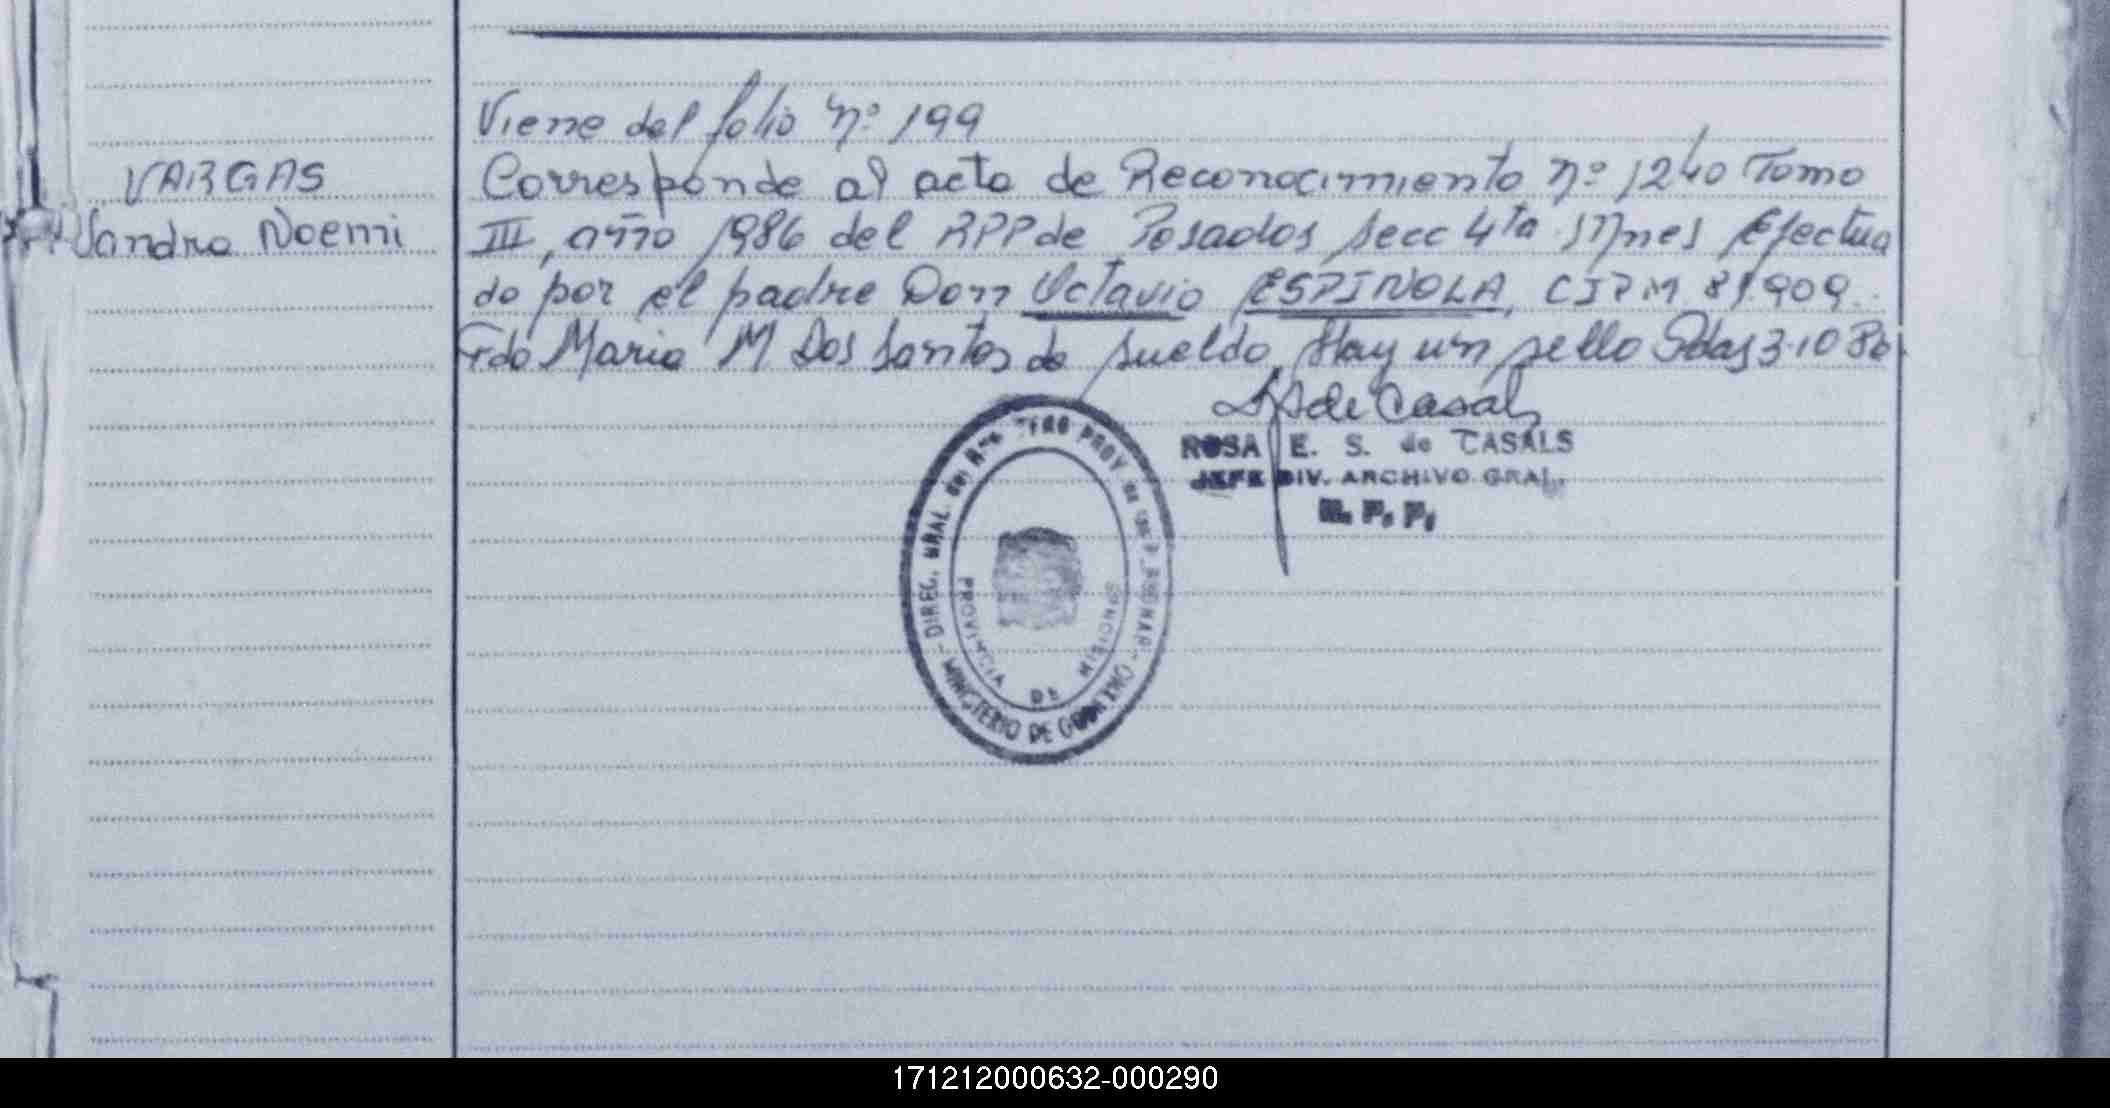 Viene del folio nº 199
VARGAS
Corresponde al acta de Reconocimiento nº 1240 Tomo
Sandra Noemi
III, año 1986 del RPP de Posadas secc 4ta Mnes Efectua
do por el padre Don Octavio ESPINOLA, CIPM 81.909.
Fdo Maria M Dos Santos de Sueldo, Hay un sello Pdas 3-10 86
de Casals
ROSA E. S. de CASALS
JEFE DIV. ARCHIVO GRAL.
R. P. P.
DIREC. GRAL. del PROV. de
MINISTERIO DE GOBIERNO
PROVINCIA DE MISIONES
171212000632-000290